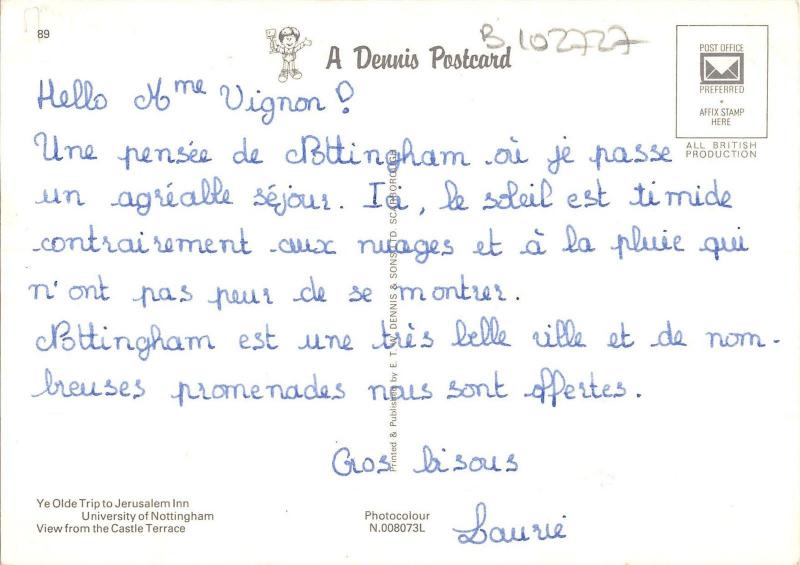 89
A Dennis Postcard
B 102727
POST OFFICE
PREFERRED
AFFIX STAMP
HERE
ALL BRITISH
PRODUCTION
Hello Mme Vignon !
Une pensée de Nottingham où je passe
un agréable séjour. Ici, le soleil est timide
contrairement aux nuages et à la pluie qui
n'ont pas peur de se montrer.
Nottingham est une très belle ville et de nom-
breuses promenades nous sont offertes.
Gros bisous
Laurie
Printed & Published by E. T. W. DENNIS & SONS LTD SCARBOROUGH
Ye Olde Trip to Jerusalem Inn
University of Nottingham
View from the Castle Terrace
Photocolour
N.008073L